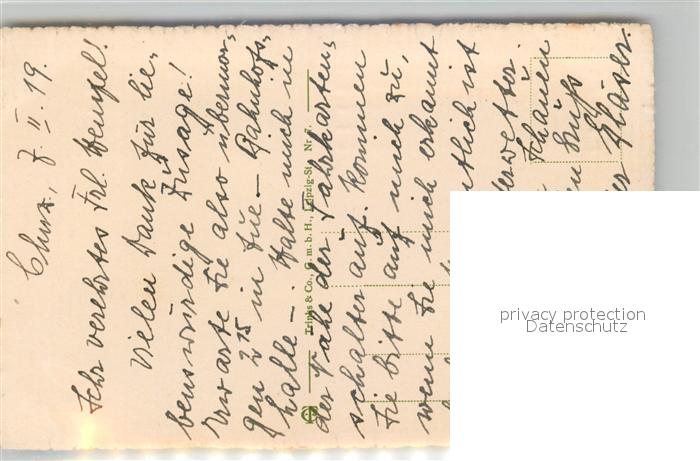 Chem., 7. II. 19.
Sehr verehrtes Frl. Hempel!
Vielen Dank für lie-
benswürdige Zusage!
Erwarte Sie also übermor-
gen 2 15 in der Bahnhofs-
halle –. Halte mich in
der Nähe der Fahrkarten-
schalter auf. Kommen
Sie bitte auf mich zu,
wenn Sie mich erkannt
tlich ist
derwetter.
schauen
en Gruß
Trinks & Co., G. m. b. H., Leipzig-St. Nr. 7.
privacy protection
Datenschutz